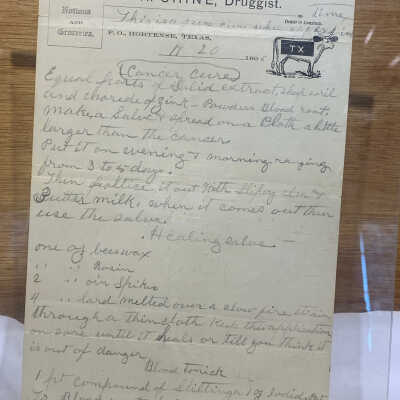 Druggist.
Notions
AND
Groceries.
This is a pure cure when used in time
P. O., HORTENSE, TEXAS,
11 20 189
TX
Cancer Cure
Equal parts of Solid extract sheep soril
and choride of zink - Powdered Blood root.
Make a Salve & spread on a Cloth a little
larger than the cancer
Put it on evening & morning
from 3 to 5 days.
Then poltice it out with Slipry elm &
Butter milk, when it comes out then
use the salve.
Healing salve -
one oz beeswax
" " Rosin
2 " oir Spike
4 " lard melted over a slow fire strain
through a thin cloth Keep this application
on sore until it heals or till you think it
is out of danger
Blood tonick
1 pt compound of Stillingia 1 oz Iodid Pot